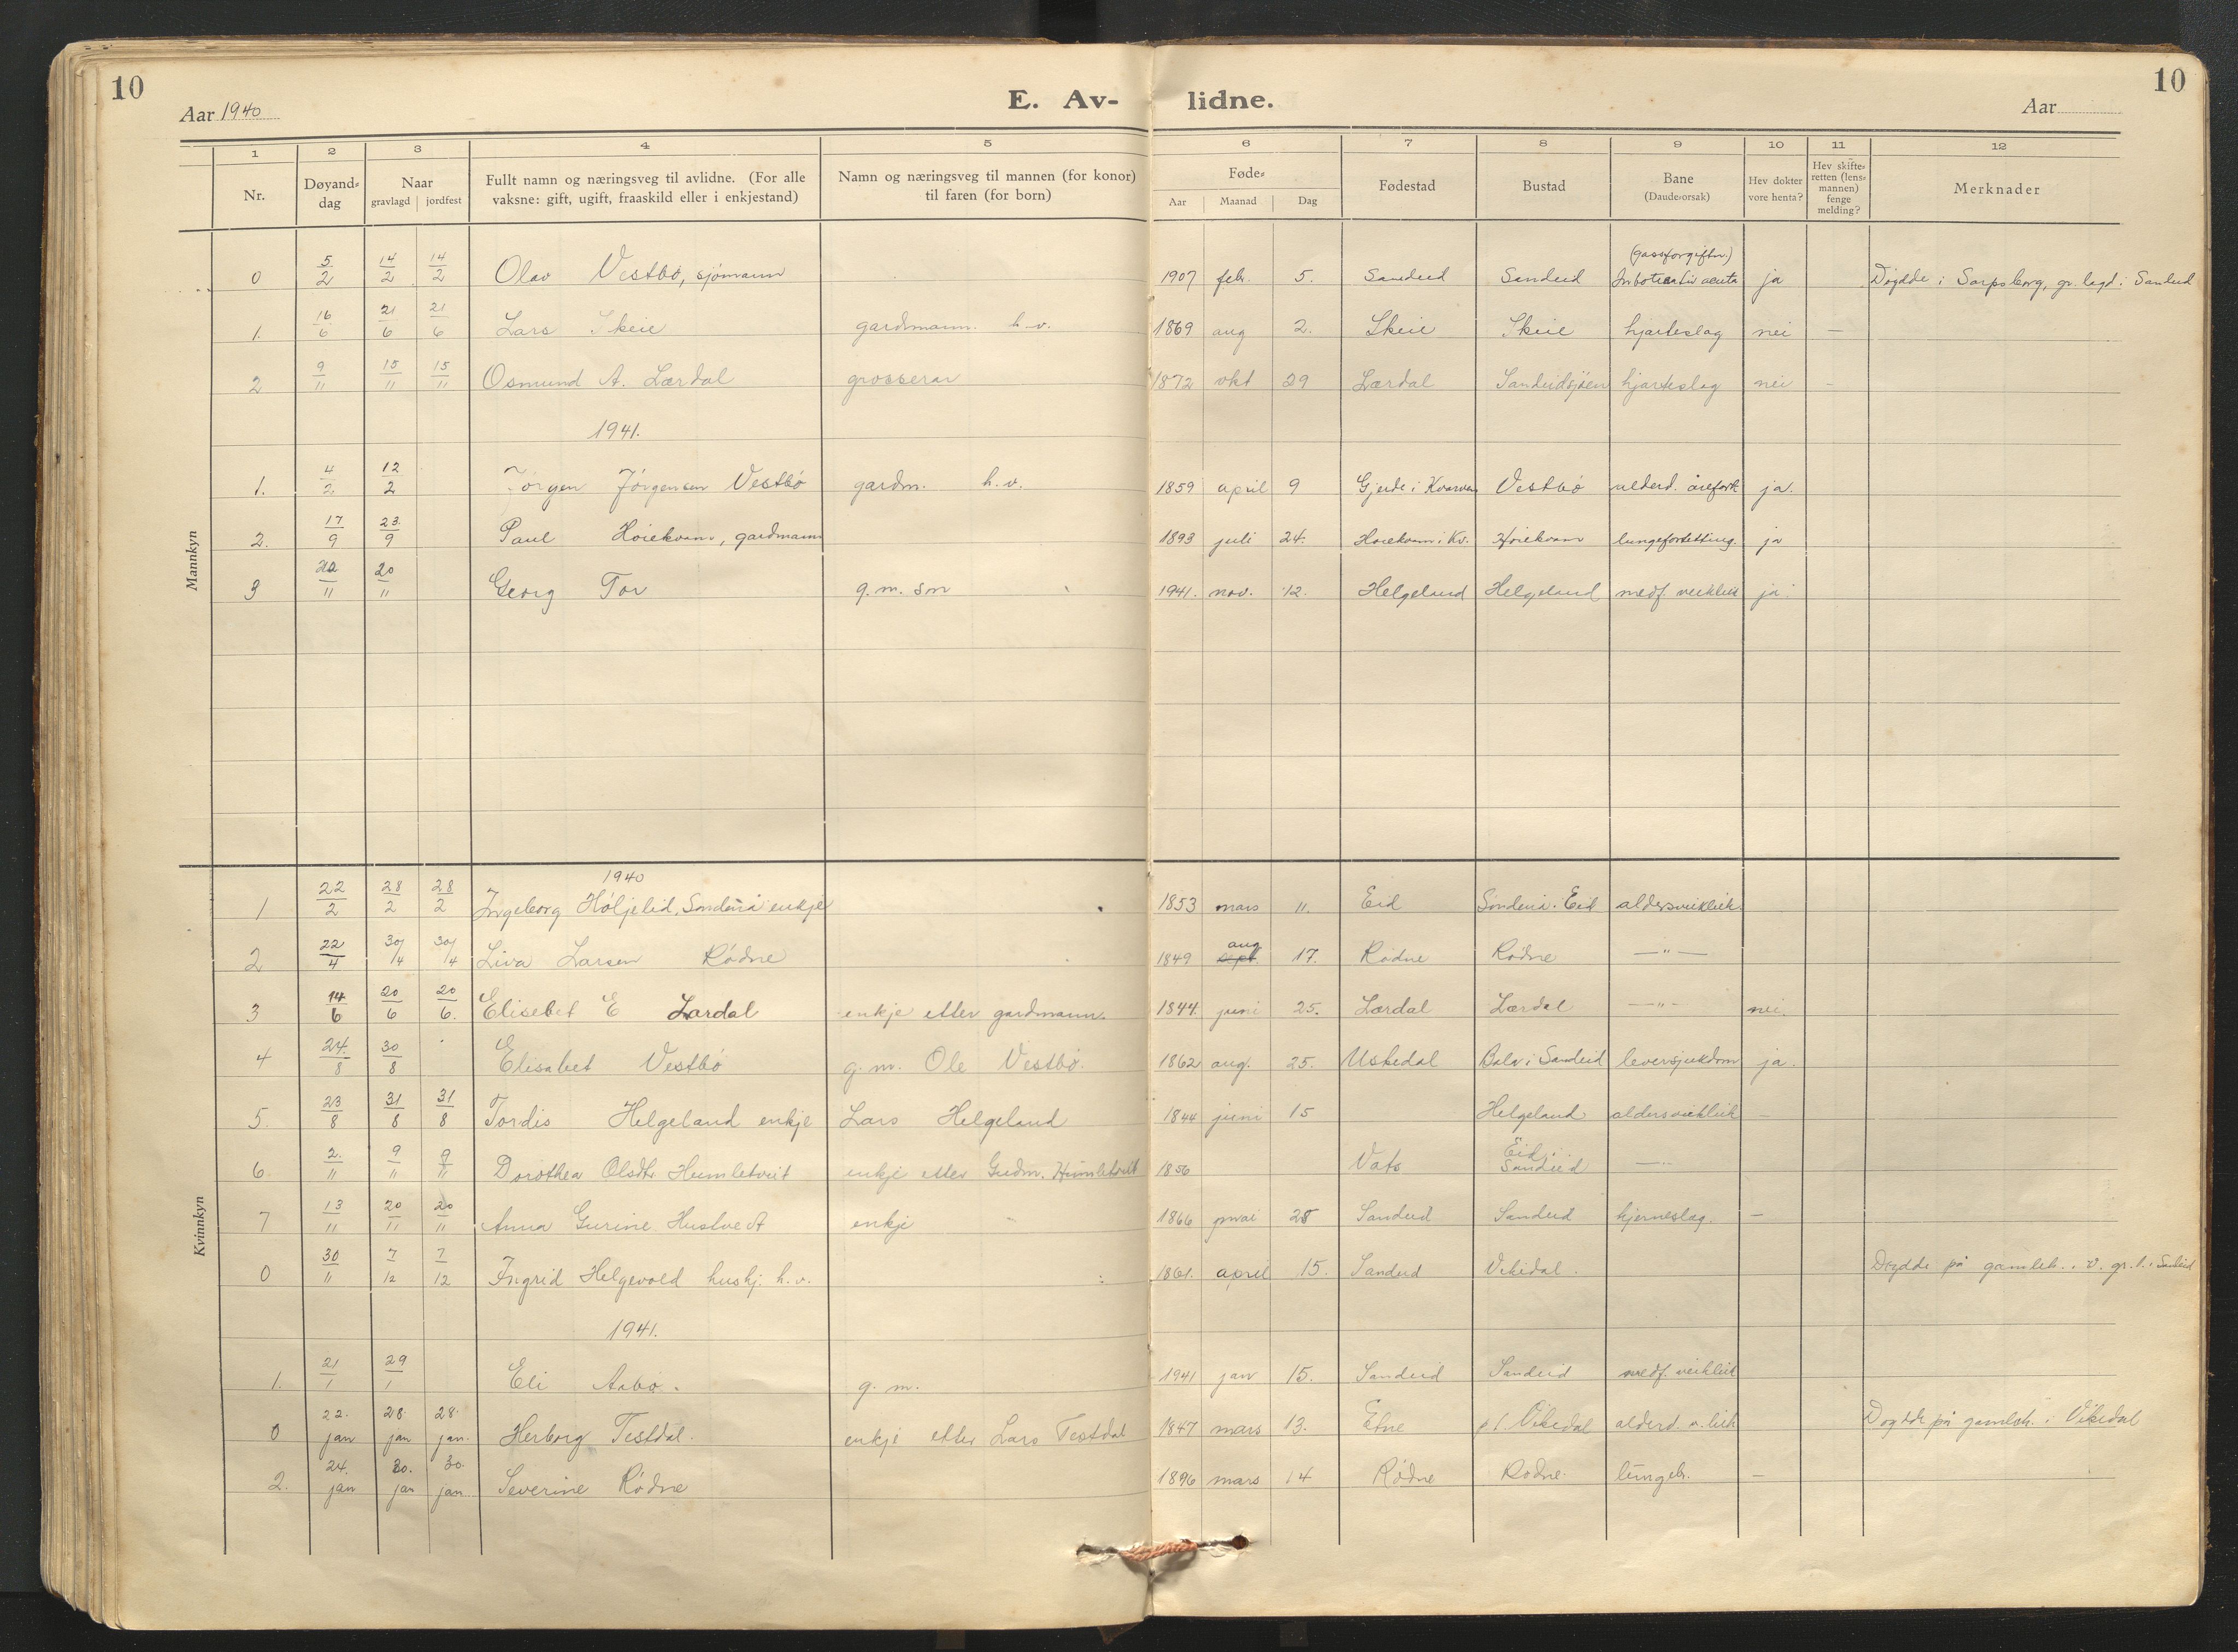 10
10
Aar 1940
E. Av- lidne.
Aar
1 2 3 4 5 6 7 8 9 10 11 12
Nr.
Døyand-
dag
Naar
gravlagd jordfest
Fullt namn og næringsveg til avlidne. (For alle
vaksne: gift, ugift, fraaskild eller i enkjestand)
Namn og næringsveg til mannen (for konor)
til faren (for born)
Føde-
Aar Maanad Dag
Fødestad
Bustad
Bane
(Daude-orsak)
Hev dokter
vore henta?
Hev skifte-
retten (lens-
mannen)
fenge
melding?
Merknader
Mannkyn
(gassforgiftn.)
0 5/2 14/2 14/2 Olav Vestbø, sjømann 1907 febr. 5. Sandeid Sandeid acuta ja Døydde i Sarpsborg, gr. lagd i Sandeid
1. 16/6 21/6 21/6 Lars Skeie gardmann h.v. 1869 aug 2. Skeie Skeie hjarteslag nei —
2 9/11 15/11 15/11 Osmund A. Lærdal grosserar 1872 okt 29 Lærdal Sandeidsjøen hjarteslag nei —
1941.
1. 4/2 12/2 Jørgen Jørgensen Vestbø gardm. h.v. 1859 april 9 Gjerde i Vestbø alderd. årefork ja.
2. 17/9 23/9 Paul Høiekvam, gardmann 1893 juli 24. Høiekvam i Kv. Høiekvam lungefortetting. ja
3 20/11 Georg Tor g.m. søn 1941. nov. 12. Helgeland Helgeland medf. veikleik ja.
Kvinnkyn
1940
1 22/2 28/2 28/2 Ingeborg Høljelid, Søndenå enkje 1853 mars 11. Eid Søndenå. Eid aldersveikleik
aug
2 22/4 30/4 30/4 Liva Larsen Rødne 1849 sept 17. Rødne Rødne —"—
3 14/6 20/6 20/6. Elisebet E Lærdal enkje etter gardmann. 1844. juni 25. Lærdal Lærdal —"— nei.
4 24./8 30/8 Elisabet Vestbø g.m. Ole Vestbø. 1862 aug. 25. Uskedal i Sandeid leversjukdom ja.
5. 23/8 31/8 31/8 Tordis Helgeland enkje Lars Helgeland 1844 juni 15 Helgeland aldersveikleik —
Eid i
6 2./11 9/11 9/11 Dorothea Olsdtr Humletveit enkje etter Gudm. Humletveit 1856 Vats Sandeid —"—
7 13/11 20/11 20/11 Anna Gurine Hustvedt enkje 1866 mai 28 Sandeid Sandeid hjerneslag. —
0 30/11 7/12 7/12 Ingrid Helgevold huskj. h.v. 1861. april 15. Sandeid Vikedal. Døydde på gamleh. i V. gr. l. i Sandeid
1941.
1. 21/1 29/1 Eli Aabø. g.m. 1941 jan 15. Sandeid Sandeid medf. veikleik
0 22. jan 28. jan 28. jan. Herborg Testdal. enkje etter Lars Testdal 1847 mars 13. Etne p.t. Vikedal alderd. v. leik Døydde på gamleh. i Vikedal
2. 24. jan 30. jan 30. jan. Severine Rødne 1896 mars 14 Rødne Rødne lungeb. —